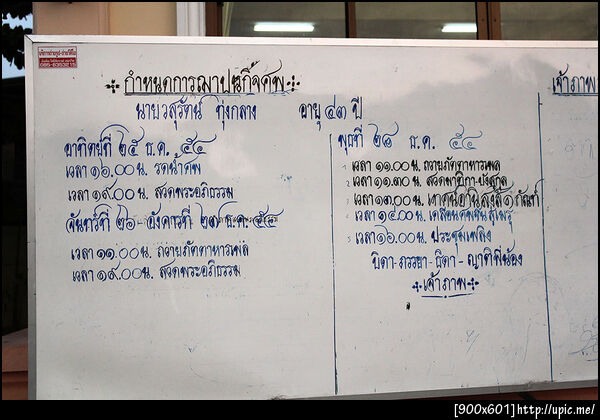 085-8353215
กำหนดการฌาปนกิจศพ
นายวสุรัตน์ ทุ่งกลาง อายุ ๔๓ ปี
อาทิตย์ที่ ๒๕ ธ.ค. ๕๔
เวลา ๑๖.๐๐ น. รดน้ำศพ
เวลา ๑๙.๐๐ น. สวดพระอภิธรรม
จันทร์ที่ ๒๖ - อังคารที่ ๒๗ ธ.ค. ๕๔
เวลา ๑๑.๐๐ น. ถวายภัตตาหารเพล
เวลา ๑๙.๐๐ น. สวดพระอภิธรรม
พุธที่ ๒๘ ธ.ค. ๕๔
เวลา ๑๑.๐๐ น. ถวายภัตตาหารเพล
เวลา ๑๑.๓๐ น. สวดมาติกา-บังสุกุล
เวลา ๑๓.๐๐ น. เทศน์อานิสงส์ ๑ กัณฑ์
เวลา ๑๔.๐๐ น. เคลื่อนศพขึ้นสู่เมรุ
เวลา ๑๖.๐๐ น. ประชุมเพลิง
บิดา - ภรรยา - ธิดา - ญาติพี่น้อง
เจ้าภาพ
เจ้าภาพ
[900x601] http://upic.me/